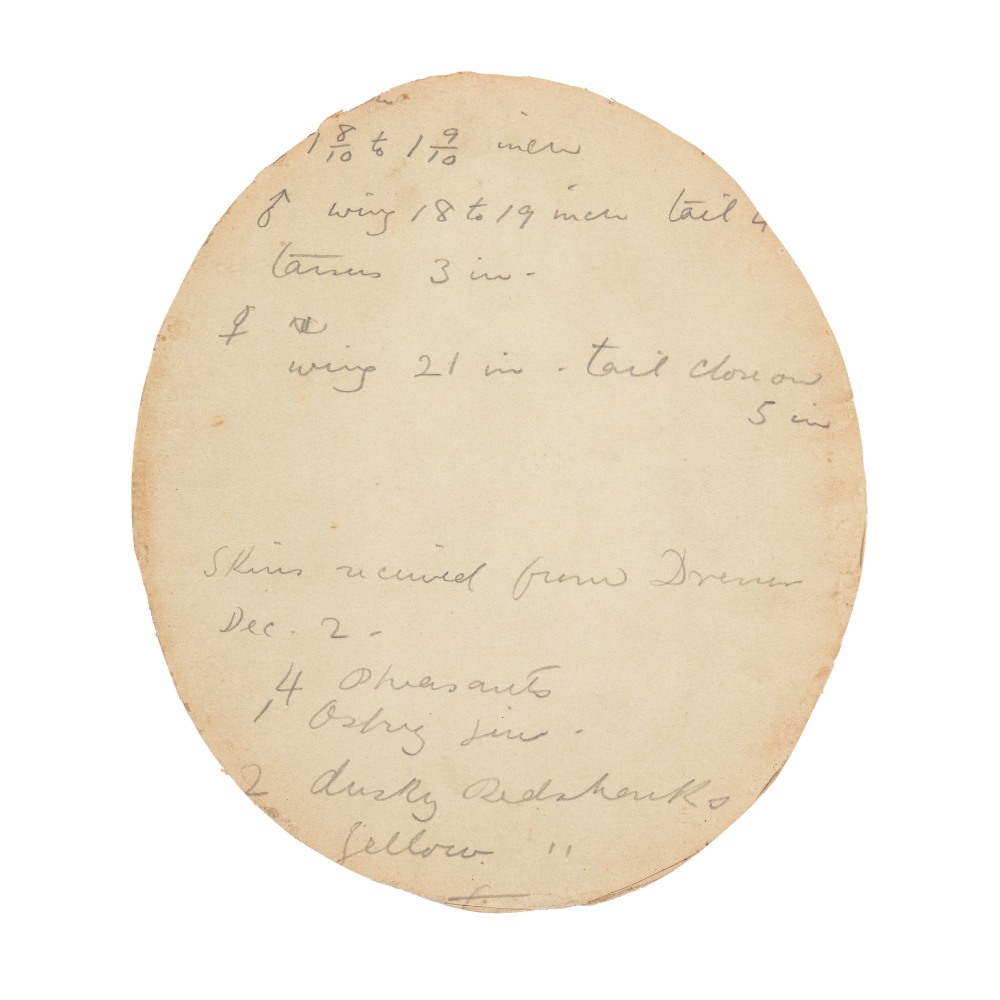 1 8/10 to 1 9/10 inch
♂ wing 18 to 19 inch tail 4
tarsus 3 in -
♀
wing 21 in - tail close on
5 in
Skins received from Dresser
Dec. 2 -
4 Pheasants
1 Osprey juv -
2 dusky Redshanks
yellow "